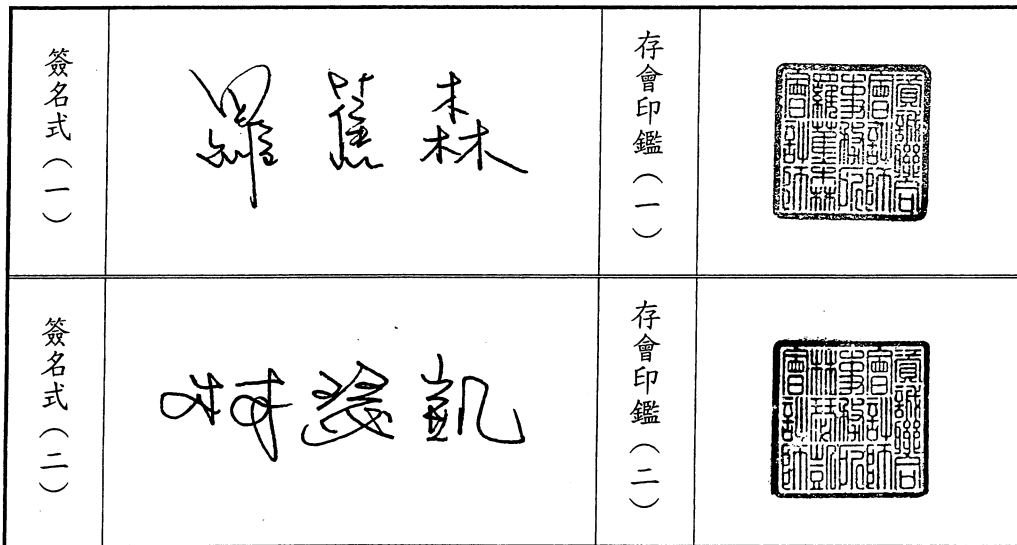 簽名式（一）
羅蕉森
存會印鑑（一）
資誠聯合
會計師
事務所
羅蕉森
會計師
簽名式（二）
林瑟凱
存會印鑑（二）
資誠聯合
會計師
事務所
林瑟凱
會計師